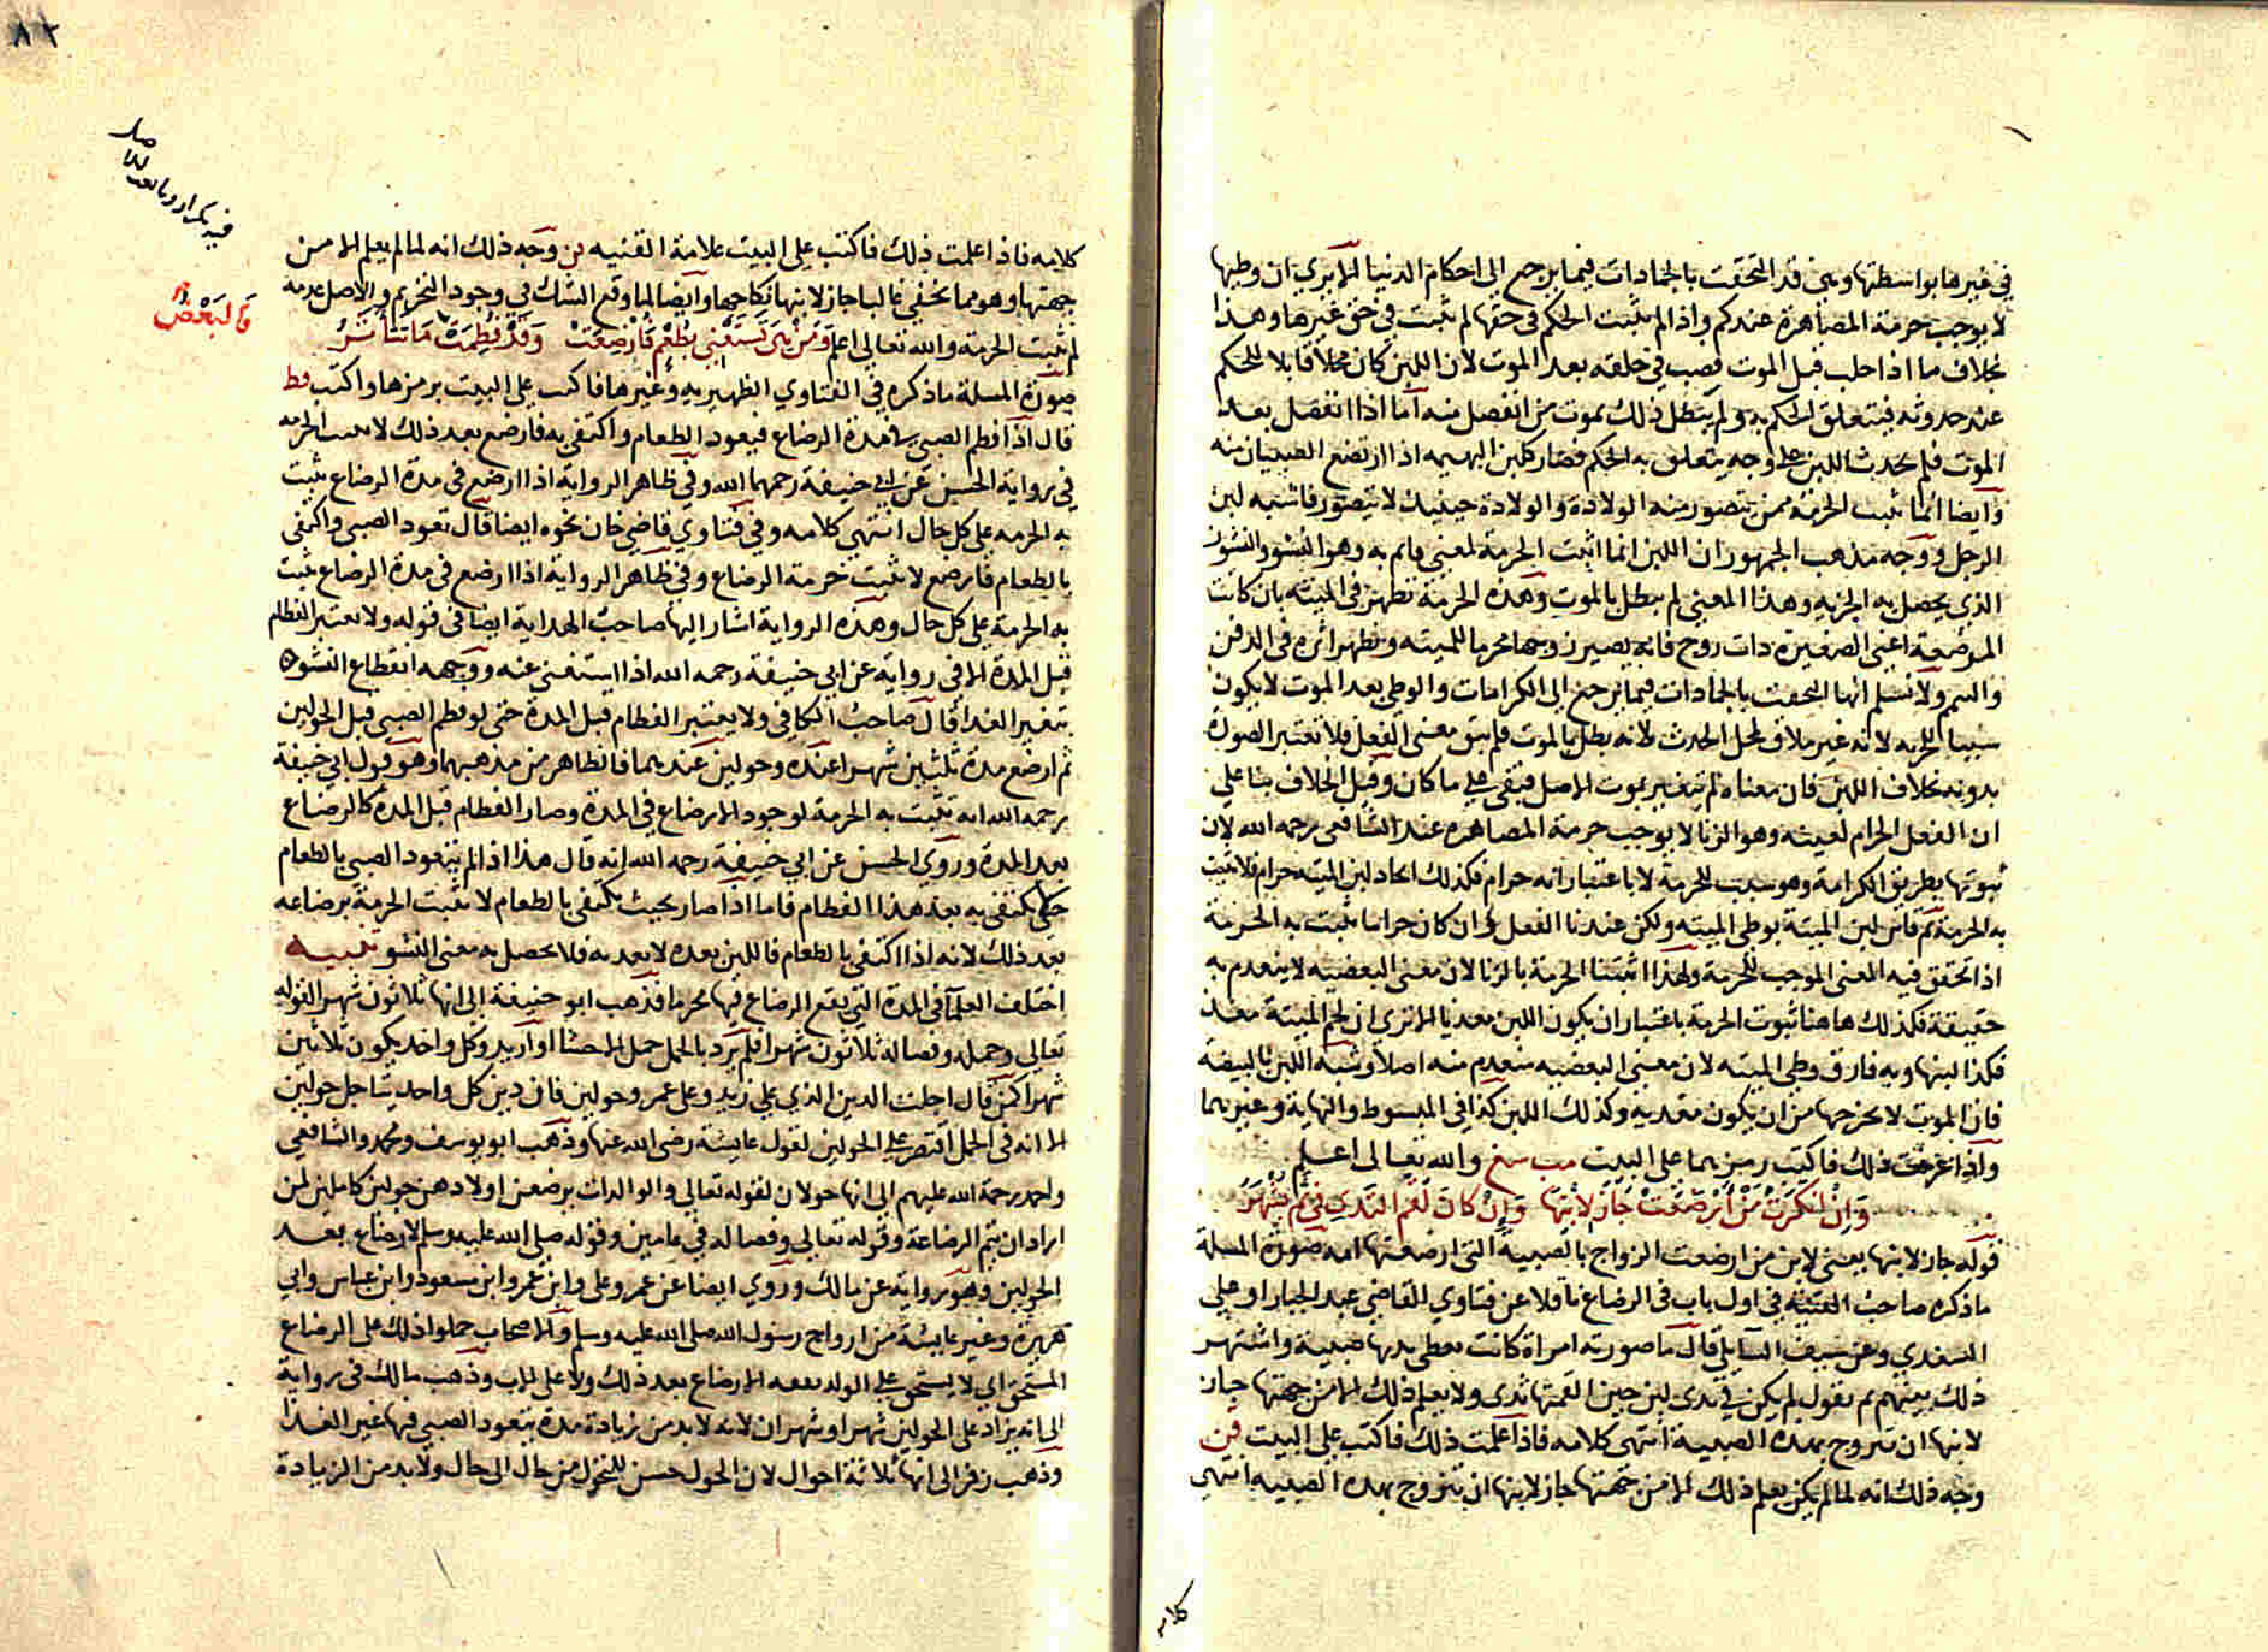 في غيرها بواسطتها وهي قد التحقت بالجمادات فيما يرجع الى احكام الدنيا الا يري ان وطيها
لا يوجب حرمة المصاهرة عندكم واذا لم يثبت الحكم في حقها لم يثبت في حق غيرها وهذا
بخلاف ما اذا حلب قبل الموت فصب في حلقه بعد الموت لان اللبن كان محلا قابلا للحكم
عند حدوثه فيتعلق الحكم به ولم يبطل ذلك بموت من انفصل منه اما اذا انفصل بعد
الموت فلم يحدث اللبن على وجه يتعلق به الحكم فصار كلبن البهيمة اذا ارتضع الصبيان منه
وايضا انما تثبت الحرمة ممن يتصور منه الولادة والولادة حينيذ لا تتصور فاشبه لبن
الرجل ووجه مذهب الجمهور ان اللبن انما اثبت الحرمة لمعنى قائم به وهو النشو والنشوز
الذي يحصل به الجزيه وهذا المعنى لم يبطل بالموت وهذه الحرمة تظهر في الميته بان كانت
المرضعة اعني الصغيرة ذات زوج فانه يصير زوجها محرما للميته ويظهر اثره في الدفن
والتيمم ولا نسلم انها التحقت بالجمادات فيما يرجع الى الكرامات والوطي بعد الموت لا يكون
سببا للحرمه لانه غير ملاق لمحل الحرث لانه بطل بالموت فلم يبق معنى الفعل فلا تعتبر الصورة
بدونه بخلاف اللبن فان معناه لم يتغير بموت الاصل فيبقى على ما كان وقيل الخلاف بنا على
ان الفعل الحرام لعينه وهو الزنا لا يوجب حرمة المصاهرة عند الشافعي رحمه الله لان
ثبوتها بطريق الكرامة وهو سبب للحرمة لا باعتبار انه حرام فكذلك ايجاد لبن الميته حرام فلا تثبت
به الحرمة ثم قاس لبن الميتة بوطي الميته ولكن عندنا الفعل وان كان حراما تثبت به الحرمة
اذا تحقق فيه المعنى الموجب للحرمة ولهذا اثبتنا الحرمة بالزنا لان معنى البعضيه لا ينعدم به
حقيقة فكذلك هاهنا ثبوت الحرمة باعتبار ان يكون اللبن مغذيا الا تري ان لحم الميتة مغذ
فكذا لبنها وبه فارق وطي الميته لان معنى البعضيه منعدم منه اصلا وشبه اللبن بالبيضة
فان الموت لا يخرجها من ان يكون مغذيه وكذلك اللبن كذا في المبسوط والنهاية وغيرهما
واذا عرفت ذلك فاكتب رمزهما على البيت مب سغ والله تعالى اعلم
وَاِنْ اَنْكَرَتْ مَنْ اَرْضَعَتْ جَازَ لِابْنِهَا وَاِنْ كَانَ لَقْمُ الثَدْيِ فِيْ فَمٍ يُشْهَرُ
قوله جاز لابنها يعني لابن من ارضعت الزواج بالصبيه التي ارضعتها امه صورة المسلة
ما ذكره صاحب القنيه في اول باب في الرضاع ناقلا عن فتاوي القاضي عبد الجبار او علي
السغدي وعن سيف السايلي قال ما صورته امراة كانت تعطي ثديها صبية واشتهر
ذلك بينهم ثم تقول لم يكن في ثدي لبن حين القمتها ثدى ولا يعلم ذلك الا من جهتها جاز
لابنها ان يتزوج بهذه الصبية انتهى كلامه فاذا علمت ذلك فاكتب على البيت قن
وجه ذلك انه لما لم يكن يعلم ذلك الا من جهتها جاز لابنها ان يتزوج بهذه الصبيه انتهى
كلامه
٨٢
فيه تكرار
قَالبَعْضُ
كلامه فاذا علمت ذلك فاكتب على البيت علامة القنيه قن وجه ذلك انه لما لم يعلم الا من
جهتها وهو مما يخفي غالبا جاز لابنها نكاحها وايضا لما وقع الشك في وجود التحريم والاصل عدمه
لم تثبت الحرمة والله تعالى اعلم وَمَنْ هِيَ تَسْتَغْنِي بِطُعْمٍ فَاُرْضِعَتْ وَقَدْ فُطِمَتْ
صورة المسلة ما ذكره في الفتاوي الظهيريه وغيرها فاكتب على البيت برمزها واكتب قط
قال اذا فطم الصبي في مدة الرضاع فيعود الطعام واكتفى به فارضع بعد ذلك لا تثبت الحرمه
في رواية الحسن عن ابي حنيفة رحمهما الله وفي ظاهر الرواية اذا ارضع في مدة الرضاع يثبت
به الحرمه على كل حال انتهى كلامه وفي فتاوي قاضي خان نحوه ايضا قال تعود الصبي واكتفى
بالطعام فارضع لا تثبت حرمة الرضاع وفي ظاهر الرواية اذا ارضع في مدة الرضاع يثبت
به الحرمة على كل حال وهذه الرواية اشار اليها صاحب الهداية ايضا في قوله ولا يعتبر الفطام
قبل المدة الا في رواية عن ابي حنيفة رحمه الله اذا استغنى عنه ووجهه انقطاع النشوه
بتغير الغدا قال صاحب الكافي ولا يعتبر الفطام قبل المدة حتى لو فطم الصبي قبل الحولين
ثم ارضع مدة ثلثين شهرا عنده وحولين عندهما فالظاهر من مذهبهما وهو قول ابي حنيفة
رحمه الله انه يثبت به الحرمة لوجود الارضاع في المدة وصار الفطام قبل المدة كالرضاع
بعد المدة وروي الحسن عن ابي حنيفة رحمه الله انه قال هذا اذا لم يتعود الصبي بالطعام
حتى يكتفى به بعد هذا الفطام فاما اذا صار بحيث يكتفى بالطعام لا تثبت الحرمة برضاعه
بعد ذلك لانه اذا اكتفى بالطعام فاللبن بعده لا يغديه فلا يحصل به معنى النشو تنبيه
اختلف العلما في المدة التي يقع الرضاع فيها محرما فذهب ابو حنيفة الى انها ثلاثون شهرا لقوله
تعالى وحمله وفصاله ثلاثون شهرا فلم يرد بالحمل حمل الاحشا او اريد وكل واحد يكون ثلاثين
شهرا كمن قال اجلت الدين الذي على زيد وعلى عمرو حولين فان دين كل واحد يتاجل حولين
الا انه في الحمل اقتصر على الحولين لقول عايشة رضى الله عنها وذهب ابو يوسف ومحمد والشافعي
واحمد رحمة الله عليهم الى انها حولان لقوله تعالى والوالدات يرضعن اولادهن حولين كاملين لمن
اراد ان يتم الرضاعة وقوله تعالى وفصاله في عامين وقوله صلى الله عليه وسلم لا رضاع بعد
الحولين وهو رواية عن مالك وروي ايضا عن عمر وعلى وابن عمر وابن مسعود وابن عباس وابي
هريرة وغير عايشة من ازواج رسول الله صلى الله عليه وسلم والاصحاب حملوا ذلك على الرضاع
المستحق اي لا يستحق على الولد نفقه الارضاع بعد ذلك ولا على الاب وذهب مالك في رواية
الى انه يزاد على الحولين شهرا وشهران لانه لا بد من زيادة مدة يتعود الصبي فيها غير الغذا
وذهب زفر الى انها ثلاثة احوال لان الحول حسن للتحول من حال الى حال ولا بد من الزيادة